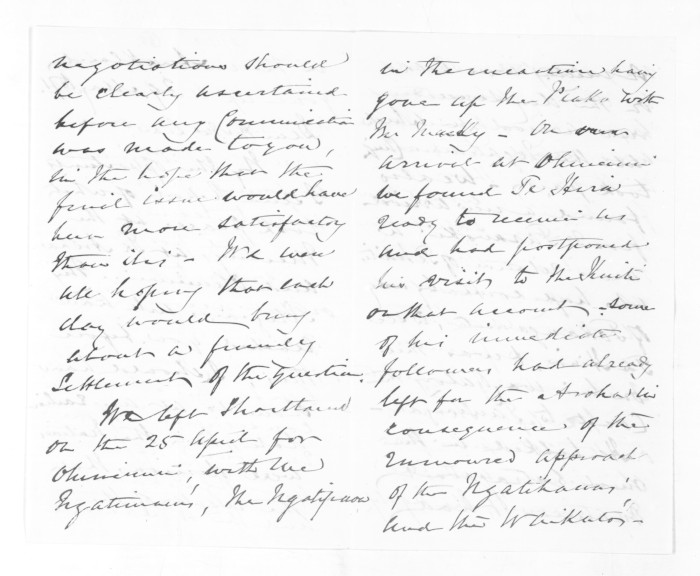 negotiations should
be clearly ascertained
before any Communication
was made to you,
in the hope that the
final issue would have
been more satisfactory
than it is - We were
all hoping that each
day would bring
about a friendly
Settlement of the Question.
We left Shortland
on the 25 April for
Ohinemuri, with the
Ngatimaru's, The Ngatipaoa
in the meantime having
gone up the Piako with
Mr Mackay - On our
arrival at Ohinemuri
we found Te Hira
ready to receive us
and had postponed
his visit to the Kuiti
on that account - some
of his immediate
followers had already
left for the Aroha in
consequence of the
rumoured approach
of the Ngatihauas',
and the Waikatos -